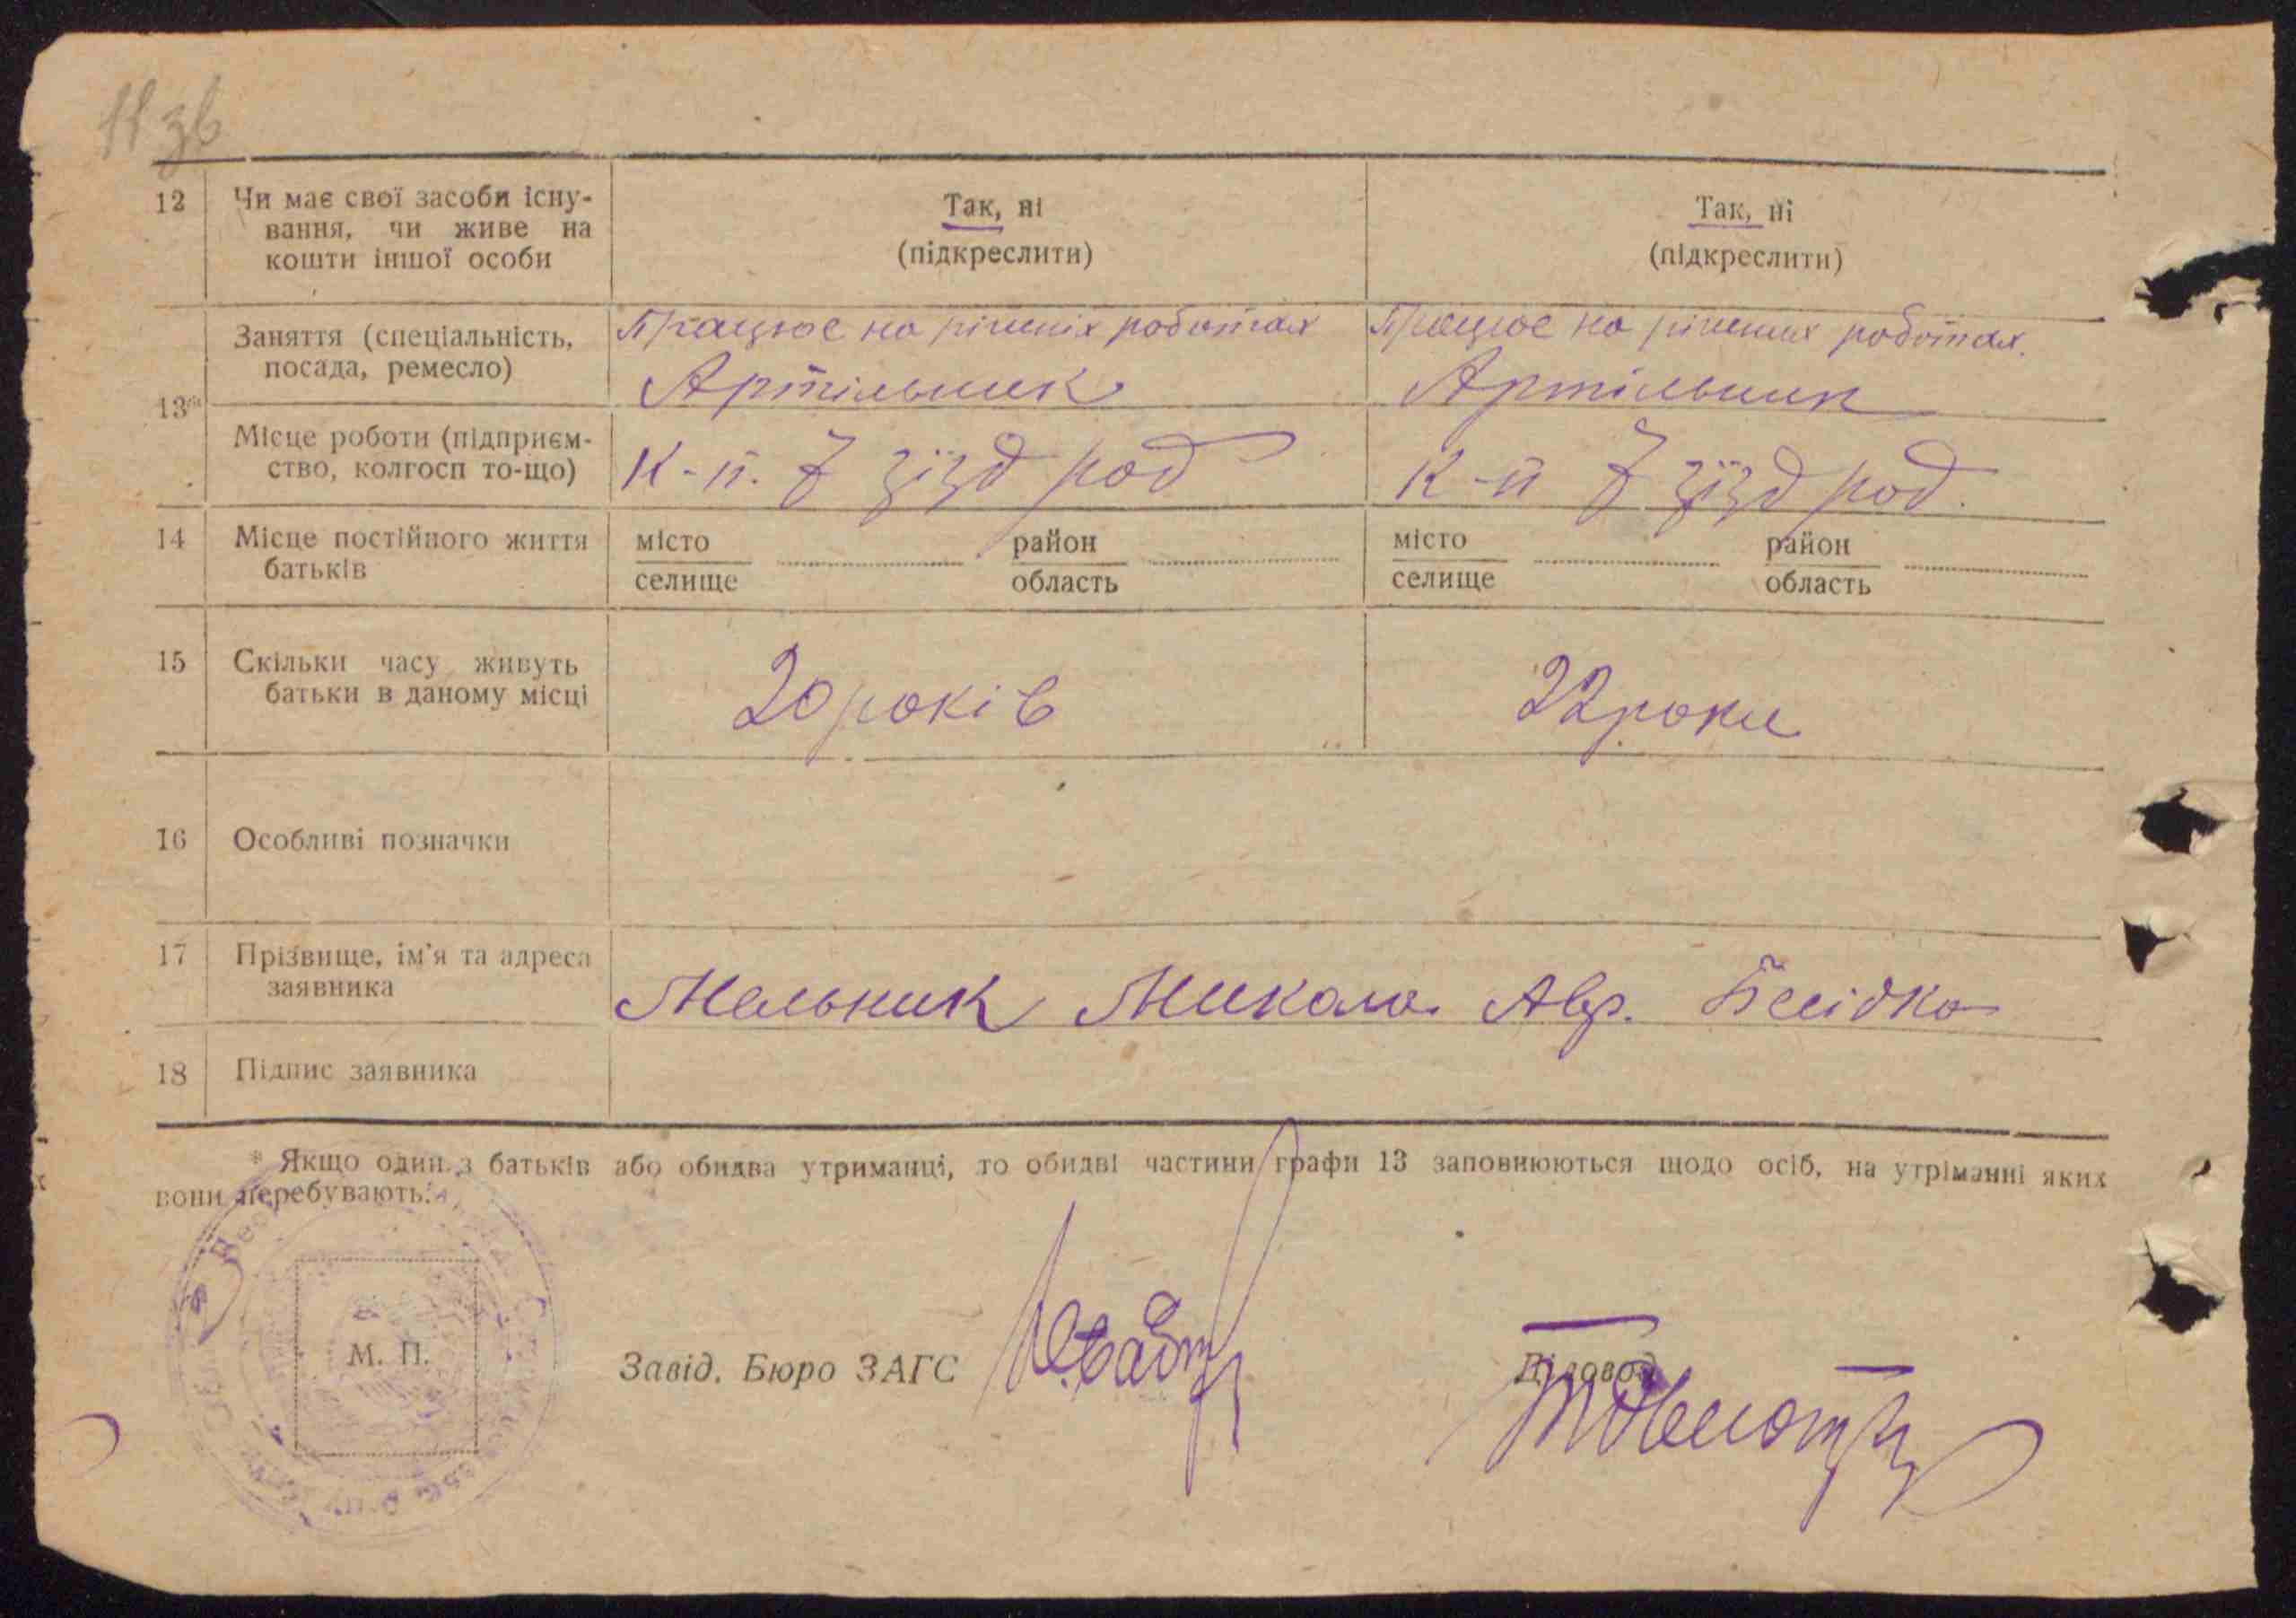 11 зв
12 Чи має свої засоби існу-
вання, чи живе на
кошти іншої особи
Так, ні
(підкреслити)
Так, ні
(підкреслити)
13*
Заняття (спеціальність,
посада, ремесло)
Працює на різних роботах
Артільник
Працює на різних роботах.
Артільник
Місце роботи (підприєм-
ство, колгосп то-що)
К-п. 7 зїзд рад
К-п 7 зїзд рад.
14 Місце постійного життя
батьків
місто район
селище область
місто район
селище область
15 Скільки часу живуть
батьки в даному місці
20 років
22 роки
16 Особливі позначки
17 Прізвище, ім'я та адреса
заявника
Мельник Микола Авр.
18 Підпис заявника
* Якщо один з батьків або обидва утриманці, то обидві частини графи 13 заповнюються щодо осіб, на утріманні яких
вони перебувають.
М. П.
Завід. Бюро ЗАГС
Діловод